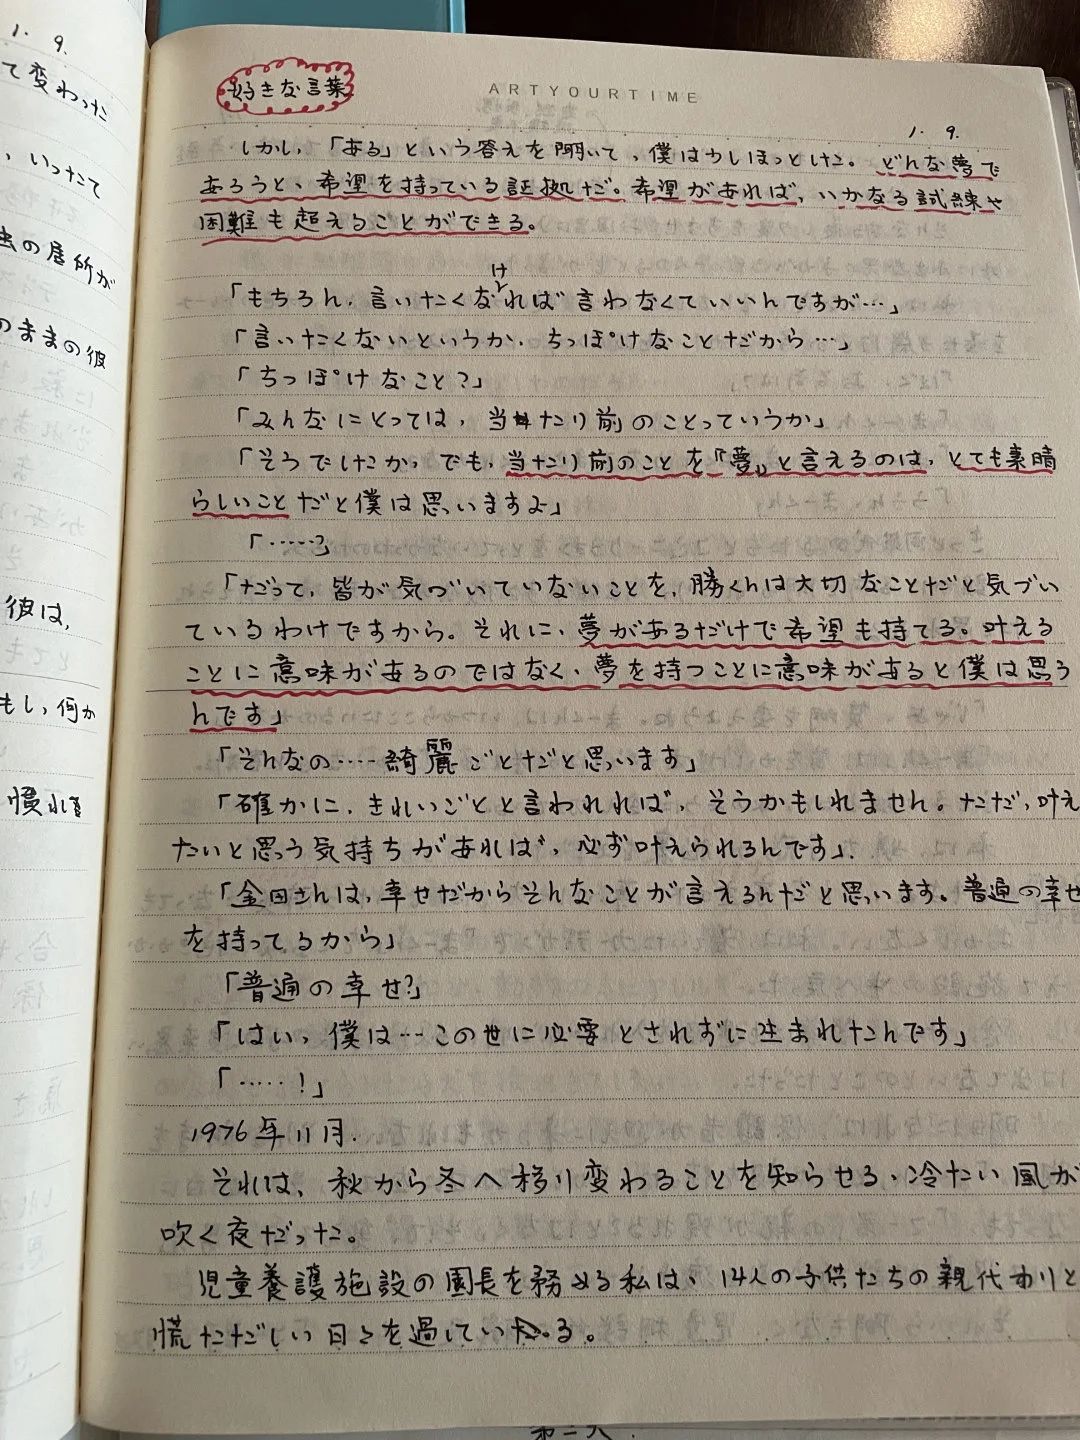 1. 9.
て変わった
、いったて
虫の居所が
のままの彼
彼は、
もし、何か
慣れ
好きな言葉
ARTYOURTIME
1. 9.
しかし、「ある」という答えを聞いて、僕は少しほっとした。どんな夢で
あろうと、希望を持っている証拠だ。希望があれば、いかなる試練や
困難も超えることができる。
「もちろん、言いたくなければ言わなくていいんですが…」
「言いたくないというか、ちっぽけなことだから…」
「ちっぽけなこと?」
「みんなにとっては、当たり前のことっていうか」
「そうでしたか、でも、当たり前のことを『夢』と言えるのは、とても素晴
らしいことだと僕は思いますよ」
「……?」
「だって、皆が気づいていないことを、勝くんは大切なことだと気づい
ているわけですから。それに、夢があるだけで希望も持てる。叶える
ことに意味があるのではなく、夢を持つことに意味があると僕は思う
んです」
「そんなの……綺麗ごとだと思います」
「確かに、きれいごとと言われれば、そうかもしれません。ただ、叶え
たいと思う気持ちがあれば、必ず叶えられるんです」.
「金田さんは、幸せだからそんなことが言えるんだと思います。普通の幸せ
を持ってるから」
「普通の幸せ?」
「はい、僕は…この世に必要とされずに生まれたんです」
「……!」
1976年11月.
それは、秋から冬へ移り変わることを知らせる、冷たい風が
吹く夜だった。
児童養護施設の園長を務める私は、14人の子供たちの親代わりと
慌ただしい日々を過していた。